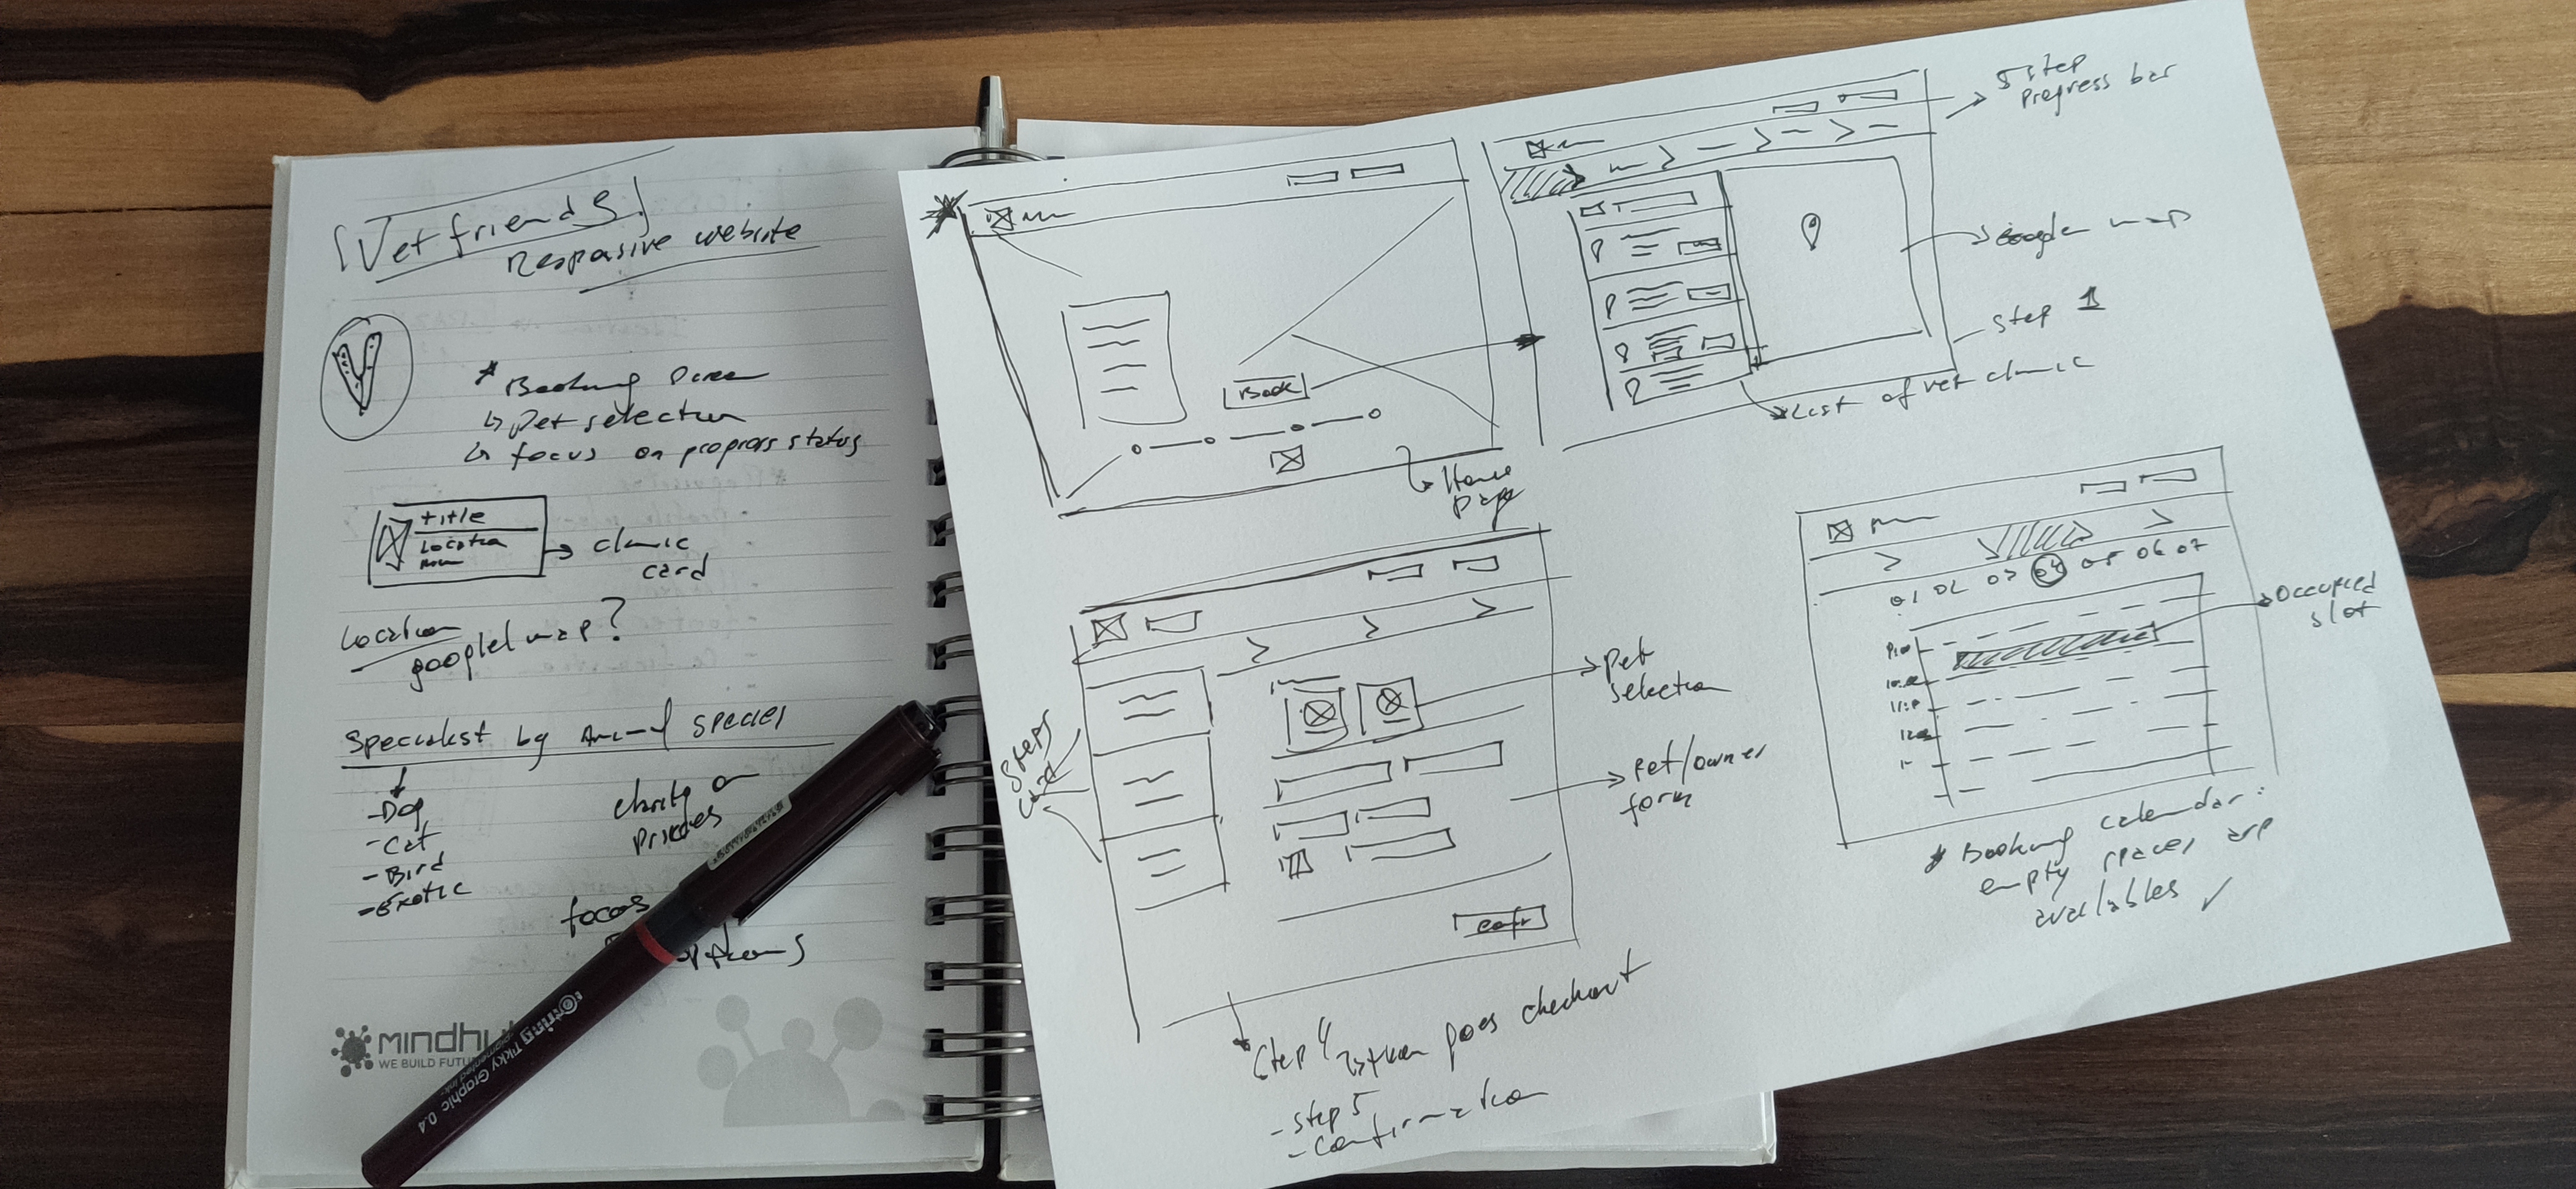 Vet friends
Responsive website
* Booking
↳ Pet selection
↳ focus on progress status
title
Location
→ clinic
card
Location
googlel map?
Specialist by Animal species
- Dog
- Cat
- Bird
- Exotic
clarity on
focus
options
MINDHU
WE BUILD FUTU
rOtring Tikky Graphic 0.4
pigmented ink
Book
Home
page
5 step
progress bar
Google map
Step 1
List of vet clinic
Steps
card
Pet
selection
Pet/owner
form
Step 4
goes checkout
- Step 5
- confirmation
01 02 03 04 05 06 07
Occupied
slot
* Booking calendar:
empty spaces are
availables ✓